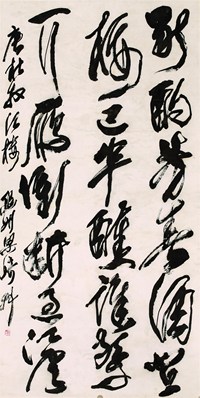 獨酌芳春酒登
樓已半醺誰驚
一行雁衝斷過江雲
唐杜牧江樓